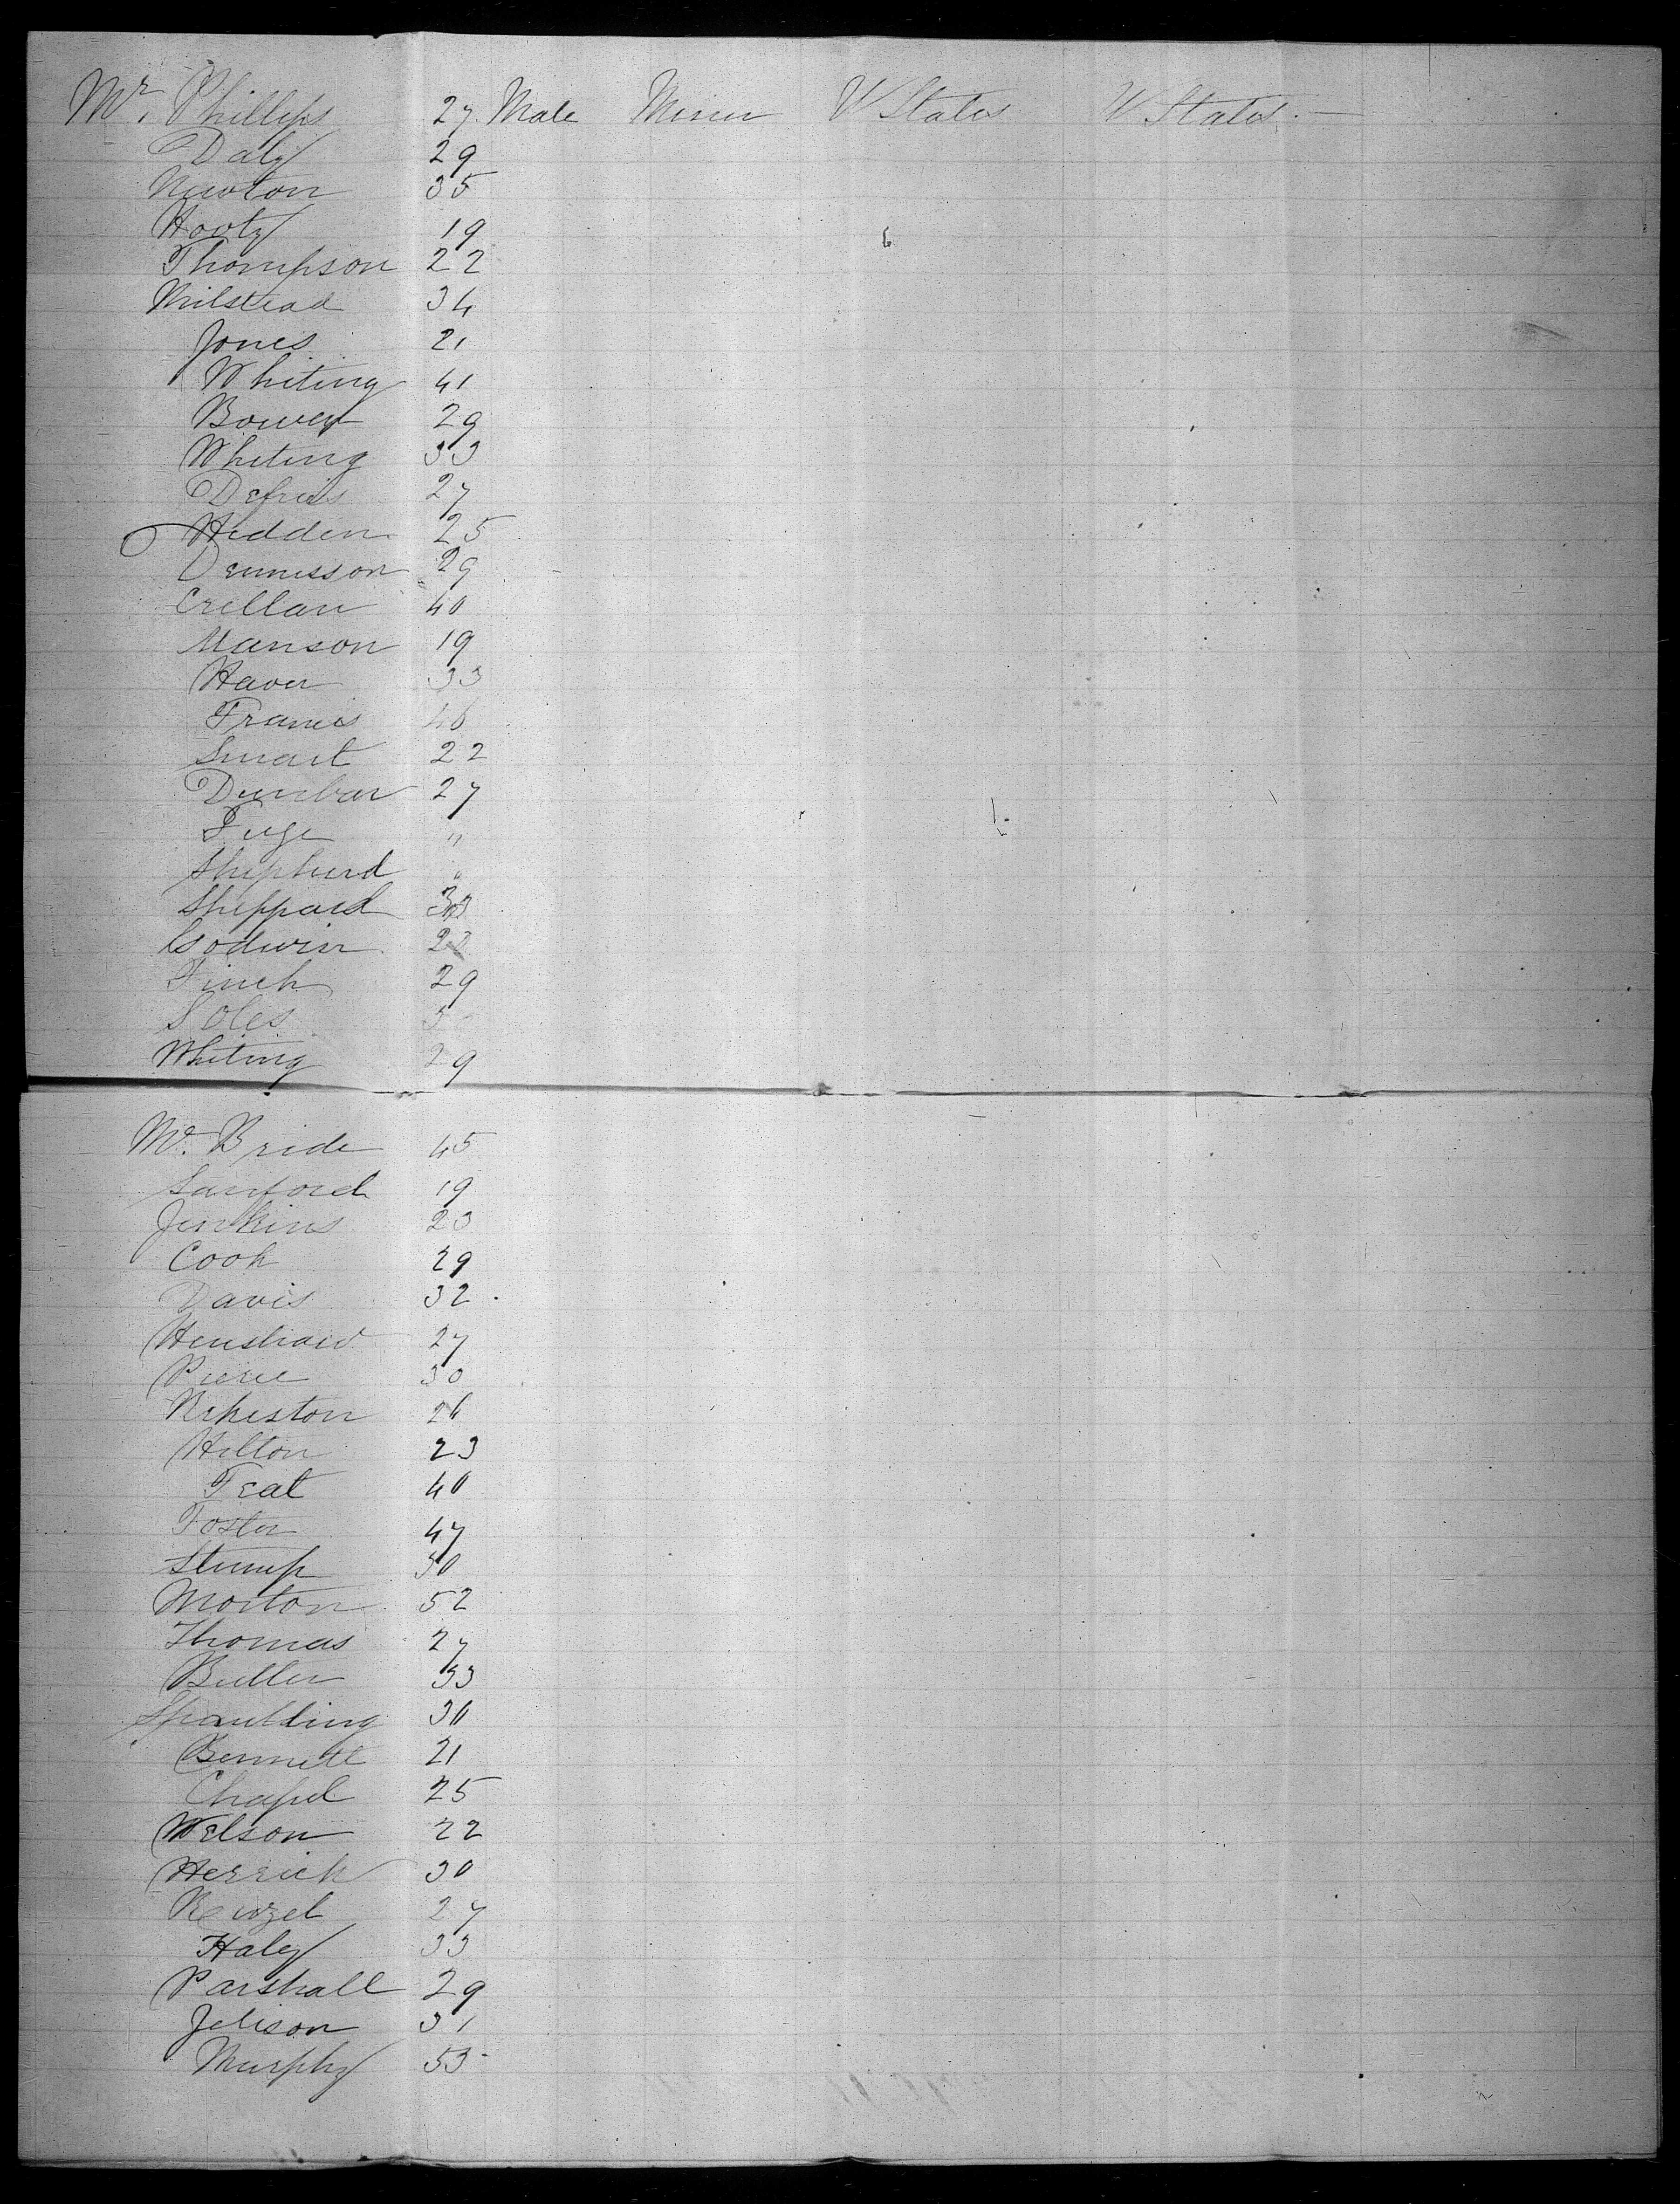 Mr. Phillips 27 Male Miner U States U States. —
Daly 29
Newton 35
Hooty 19
Thompson 22
Milstead 34
Jones 21
Whiting 41
Bower 29
Whiting 33
27
Hedden 25
Dennisson 29
Crellan 40
Manson 19
Haven 33
Francis 46
Smart 22
Dunbar 27
Fuge "
Shepherd "
Sheppard
Godwin
Finch 29
Soles
Whiting 29
Mc. Bride 45
Sanford 19
Jenkins 23
Cook 29
Davis 32
Henshaw 27
Pierce 30
Rikeston 26
Hilton 23
Teat 40
Foster 47
Stump 30
Morton 52
Thomas 27
Butler 33
Spaulding 30
Bennett 21
Chapel 25
Welson 22
Herrick 30
27
Haley 33
Parshall 29
Jelison 31
Murphy 53